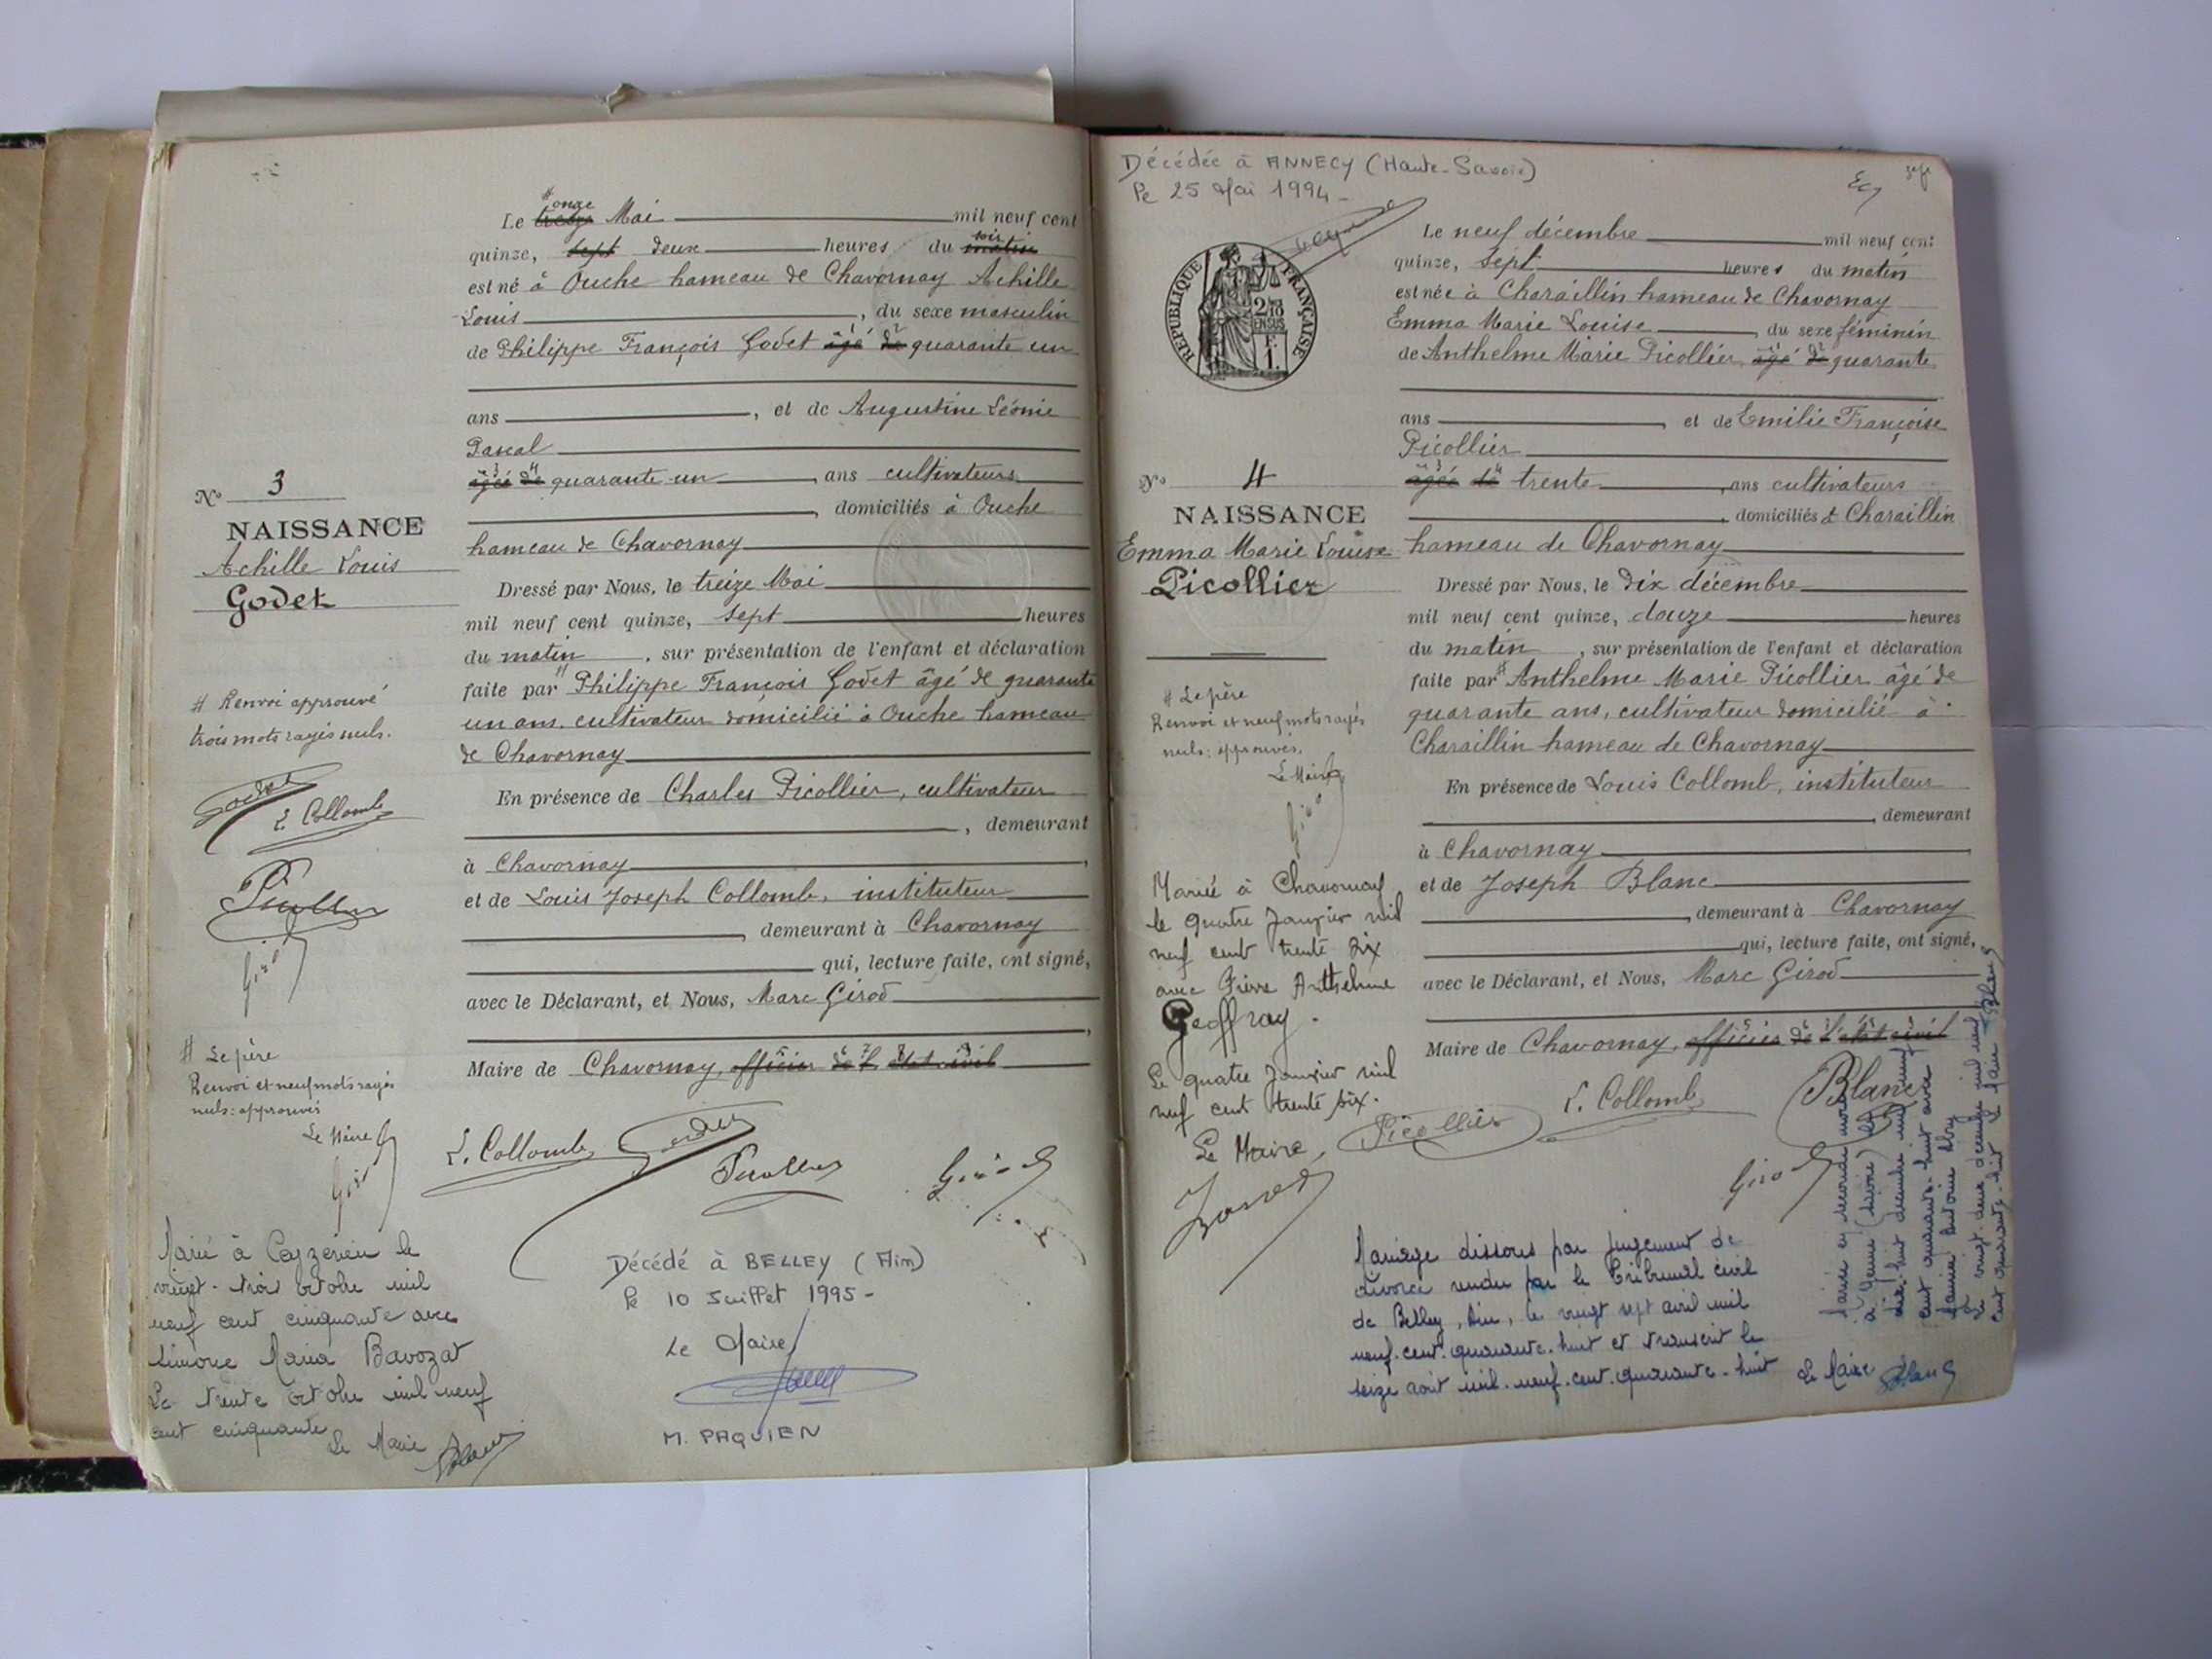 Le treize # onze Mai mil neuf cent
quinze, sept deux heures du matin soir
est né à Ouche hameau de Chavornay Achille
Louis, du sexe masculin
de Philippe François Godet âgé de quarante un
ans, et de Augustine Léonie
Pascal
âgée de quarante un, ans cultivateurs
, domiciliés à Ouche
hameau de Chavornay
Dressé par Nous, le treize Mai
mil neuf cent quinze, sept heures
du matin, sur présentation de l'enfant et déclaration
faite par # Philippe François Godet âgé de quarante
un ans, cultivateur domicilié à Ouche hameau
de Chavornay
En présence de Charles Picollier, cultivateur
, demeurant
à Chavornay,
et de Louis Joseph Collomb, instituteur
, demeurant à Chavornay
qui, lecture faite, ont signé,
avec le Déclarant, et Nous, Marc Girod
,
Maire de Chavornay, officier de l'état civil
L. Collomb Godet
Picollier Girod
No 3
NAISSANCE
Achille Louis
Godet
# Renvoi approuvé
trois mots rayés nuls.
Godet
L. Collomb
Picollier
Girod
# Le père
Renvoi et neuf mots rayés
nuls: approuvés
Le Maire
Girod
Marié à Ceyzérieu le
vingt-trois octobre mil
neuf cent cinquante avec
Simone Maria Bavozat
Le trente octobre mil neuf
cent cinquante
Le Maire Blanc
Décédé à BELLEY (Ain)
le 10 Juillet 1995-
Le Maire
M. PAQUIEN
Décédée à ANNECY (Haute-Savoie)
le 25 Mai 1994-
RÉPUBLIQUE FRANÇAISE
2/10
EN SUS
F.
1.
Le neuf décembre mil neuf cent
quinze, sept heures du matin
est née à Charaillin hameau de Chavornay
Emma Marie Louise, du sexe féminin
de Anthelme Marie Picollier, âgé de quarante
ans, et de Emilie Françoise
Picollier
âgée de trente, ans cultivateurs
, domiciliés à Charaillin
hameau de Chavornay
Dressé par Nous, le dix décembre
mil neuf cent quinze, douze heures
du matin, sur présentation de l'enfant et déclaration
faite par # Anthelme Marie Picollier âgé de
quarante ans, cultivateur domicilié à
Charaillin hameau de Chavornay
En présence de Louis Collomb, instituteur
, demeurant
à Chavornay,
et de Joseph Blanc
, demeurant à Chavornay
qui, lecture faite, ont signé,
avec le Déclarant, et Nous, Marc Girod
Maire de Chavornay, officier de l'état civil
Picollier L. Collomb Blanc
Girod
No 4
NAISSANCE
Emma Marie Louise
Picollier
# Le père
Renvoi et neuf mots rayés
nuls: approuvés.
Le Maire
Girod
Mariée à Chavornay
le quatre Janvier mil
neuf cent trente six
avec Pierre Anthelme
Geoffray.
Le quatre Janvier mil
neuf cent trente six.
Le Maire,
Mariage dissous par jugement de
divorce rendu par le Tribunal civil
de Belley, Ain, le vingt sept avril mil
neuf.cent.quarante.huit et transcrit le
seize août mil.neuf.cent.quarante-huit
Le Maire Blanc
Mariée en secondes noces
à Yenne (Savoie) le
dix-huit décembre mil neuf
cent quarante-huit avec
le vingt-deux décembre mil neuf
cent quarante-huit Le Maire Blanc